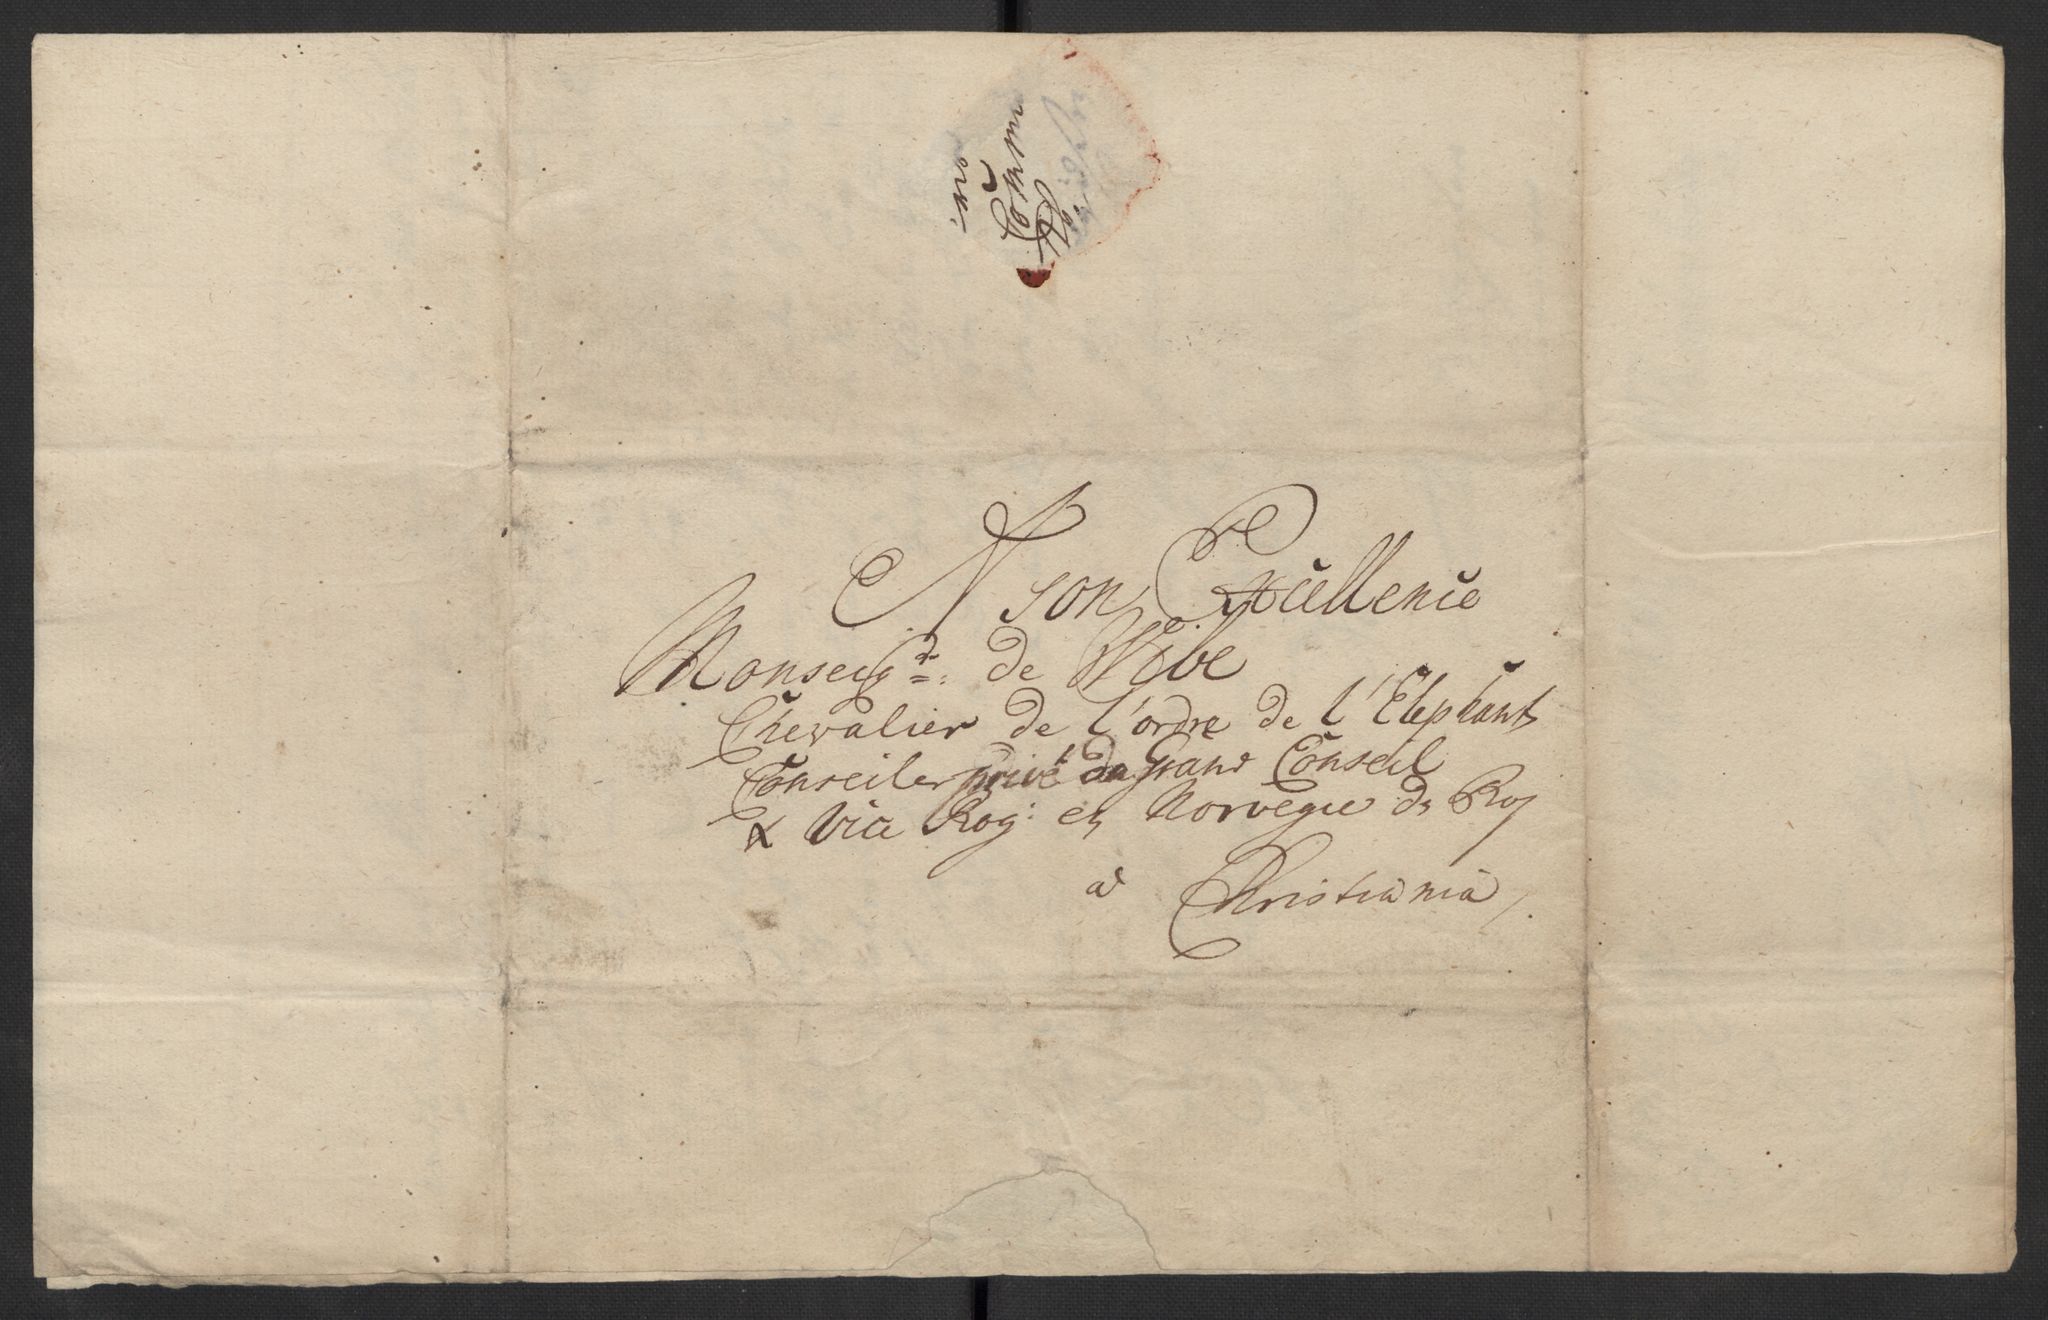 A son Excellence
Monseigr de Wibe
Chevalier de l'ordre de l'Elephant
Conseiler privé du Grand Conseil
& Vice Roy: en Norvegue du Roy
a Christiania